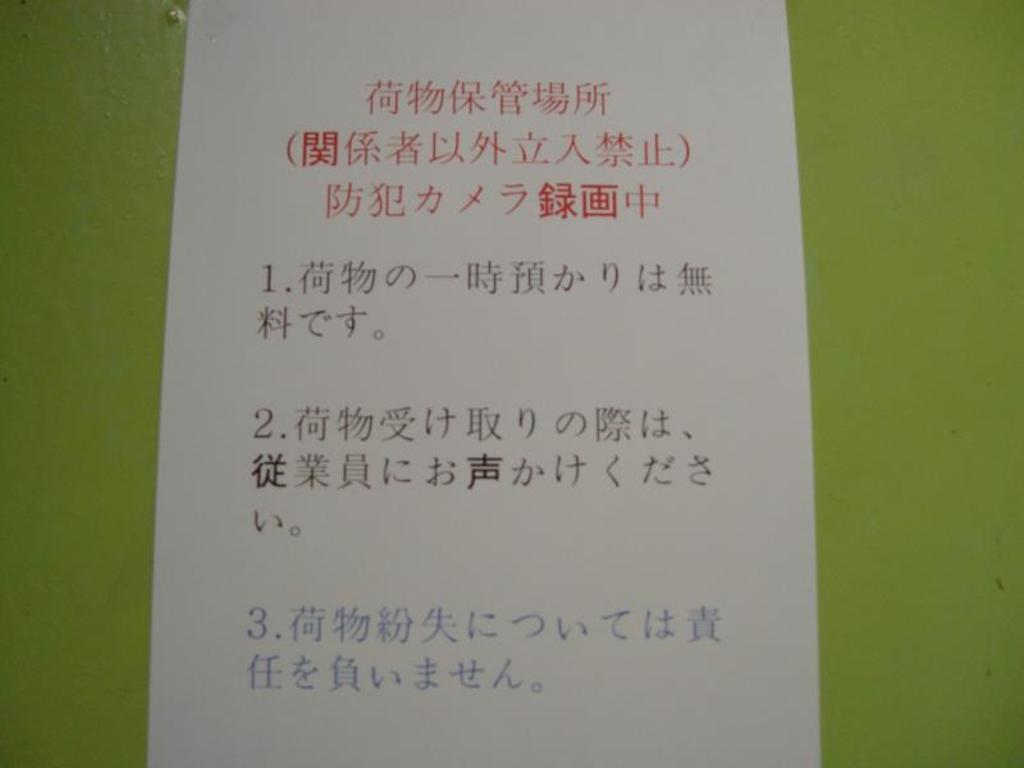 荷物保管場所
(関係者以外立入禁止)
防犯カメラ録画中
1.荷物の一時預かりは無
料です。
2.荷物受け取りの際は、
従業員にお声かけくださ
い。
3.荷物紛失については責
任を負いません。